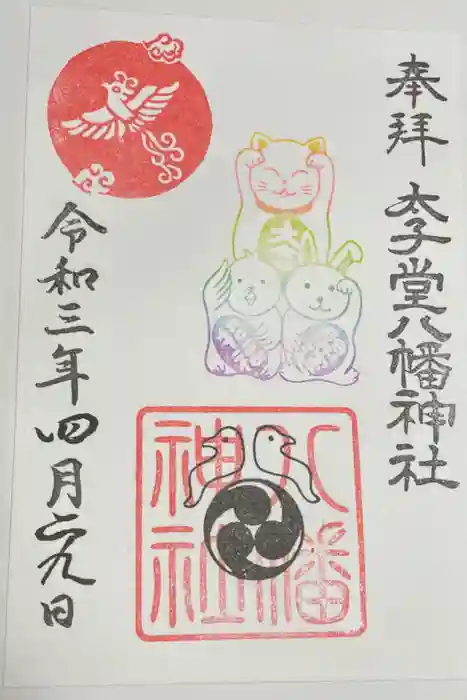 奉拝
太子堂八幡神社
八幡
神社
令和三年四月二九日